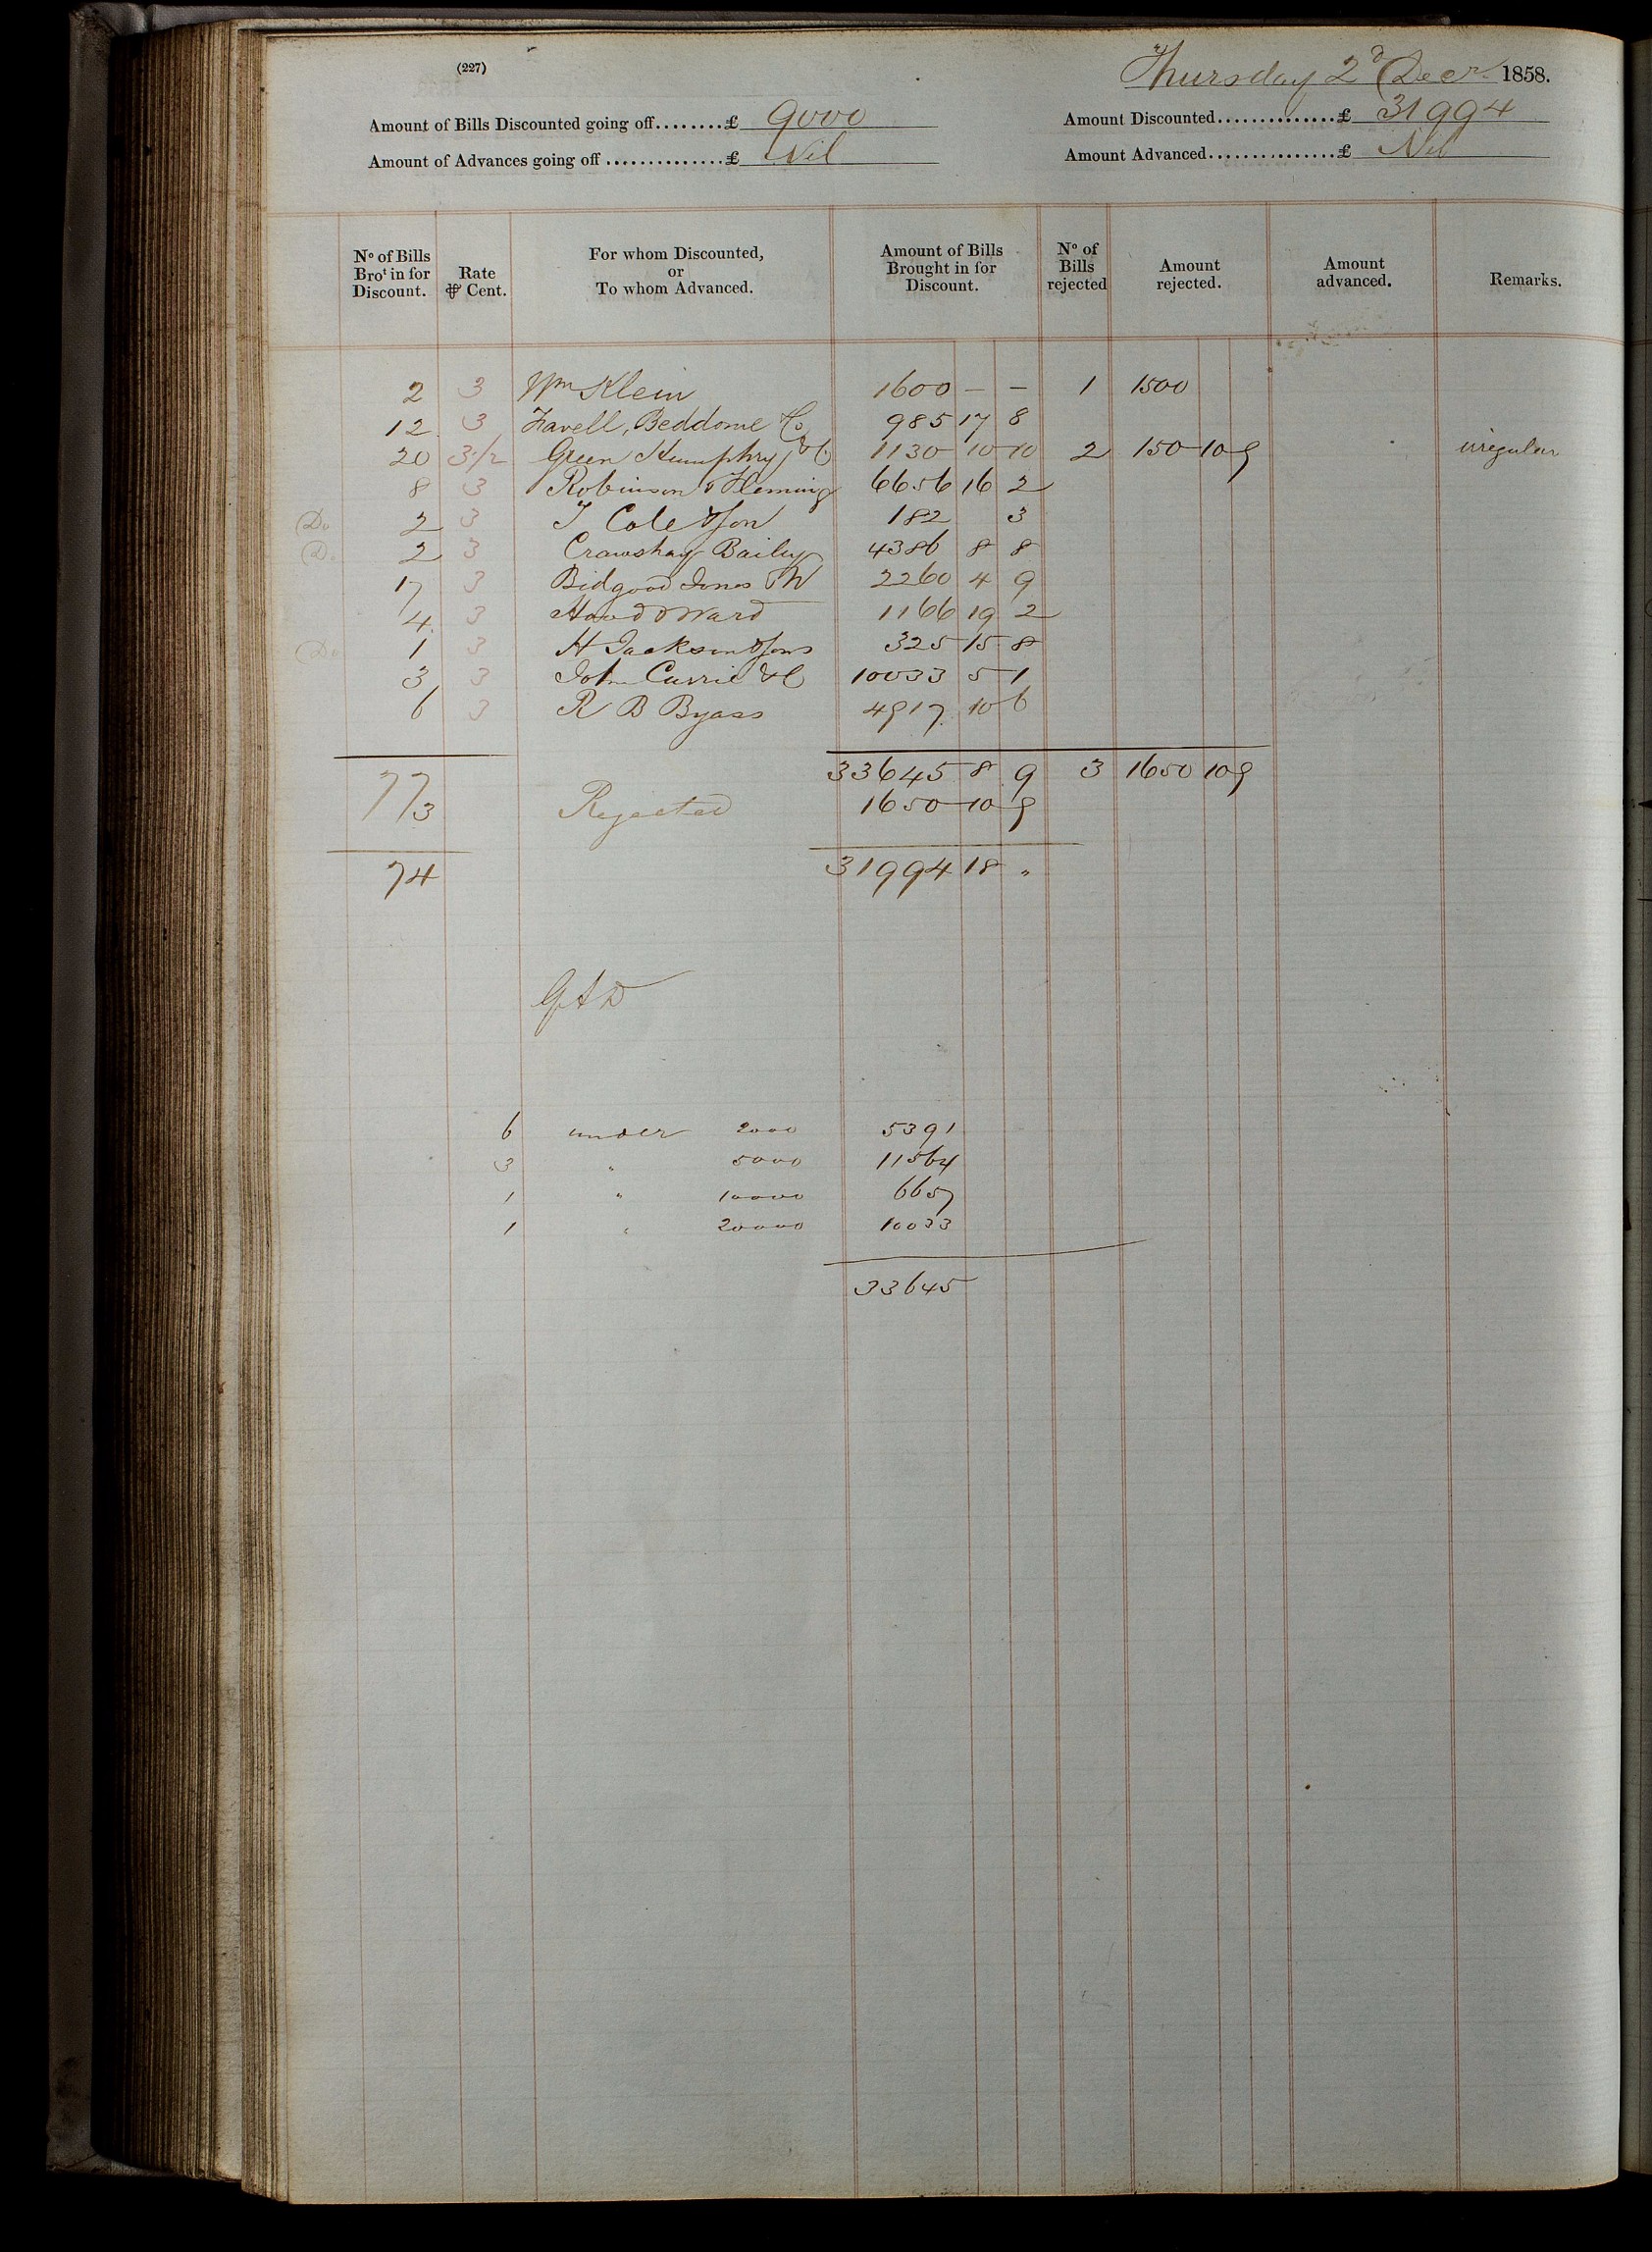 (227)
Thursday 2d Decr 1858.
Amount of Bills Discounted going off........£ 9000
Amount Discounted...............£ 31994
Amount of Advances going off..............£ Nil
Amount Advanced...............£ Nil
No of Bills Brot in for Discount. Rate ⅌ Cent. For whom Discounted, or To whom Advanced. Amount of Bills Brought in for Discount. No of Bills rejected Amount rejected. Amount advanced. Remarks.
2 3 Wm Klein 1600 — — 1 1500
12 3 Favell, Beddome & Co 985 17 8
20 3½ Green Humphry & C 1130 10 10 2 150 10 9 irregular
8 3 Robinson & Fleming 6656 16 2
Do 2 3 T Cole & Son 182 3
Do 2 3 Crawshay Bailey 4386 8 8
17 3 Bidgood Jones & W 2260 4 9
4 3 Hood & Ward 1166 19 2
Do 1 3 H Jackson & Sons 325 15 8
3 3 John Currie & C 10033 5 1
6 3 R B Byass 4917 10 6
77 33645 8 9 3 1650 10 9
3 Rejected 1650 10 9
74 31994 18 "
6 under 2000 5391
3 " 5000 11564
1 " 10000 6657
1 " 20000 10033
33645